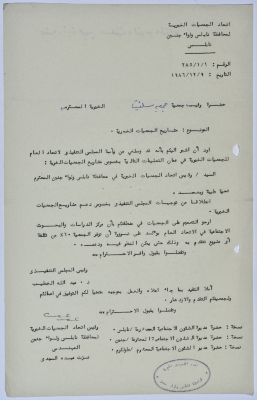 اتحاد الجمعيات الخيرية
لمحافظة نابلس ولواء جنين
نابلس
الرقم : ٢٨٥/١/٦
التاريخ : ١٩٨٦/١٢/٩
حضرة رئيسة جمعية الخيرية المحترم
الموضوع : مشاريع الجمعيات الخيرية .
أود أن أشير اليكم بأنه قد وصلني من رئاسة المجلس التنفيذي لاتحاد العام
للجمعيات الخيرية في عمان التعليمات التالية بخصوص مشاريع الجمعيات الخيرية :
السيد / رئيس اتحاد الجمعيات الخيرية في محافظة نابلس ولواء جنين المحترم
تحية طيبة وبعد
انطلاقا من توجيهات المجلس التنفيذي بخصوص دعم مشاريع الجمعيات
الخيرية .
ارجو التعميم على الجمعيات في منطقتكم بأن مركز الدراسات والبحوث
الاجتماعية في الاتحاد العام
أي مشروع تتقدم به وذلك حتى يمكن النظر فيه ودعمه .
وتفضلوا بقبول وافر الاحترام ،،،
رئيس المجلس التنفيذي
د . عبد الله الخطيب
آملا التقيد بما جاء اعلاه والعمل بموجبه متمنيا لكم التوفيق في اعمالكم
ولجمعيتكم التقدم والازدهار .
وتفضلوا بقبول الاحترام ،،،
رئيس اتحاد الجمعيات الخيرية
لمحافظة نابلس ولواء جنين
نسخة : حضرة مدير الشئون الاجتماعية المحترم / نابلس .
نسخة : حضرة مدير الشئون الاجتماعية المحترم / جنين .
نسخة : حضرة مدير الشئون الاجتماعية المحترم / طولكرم .